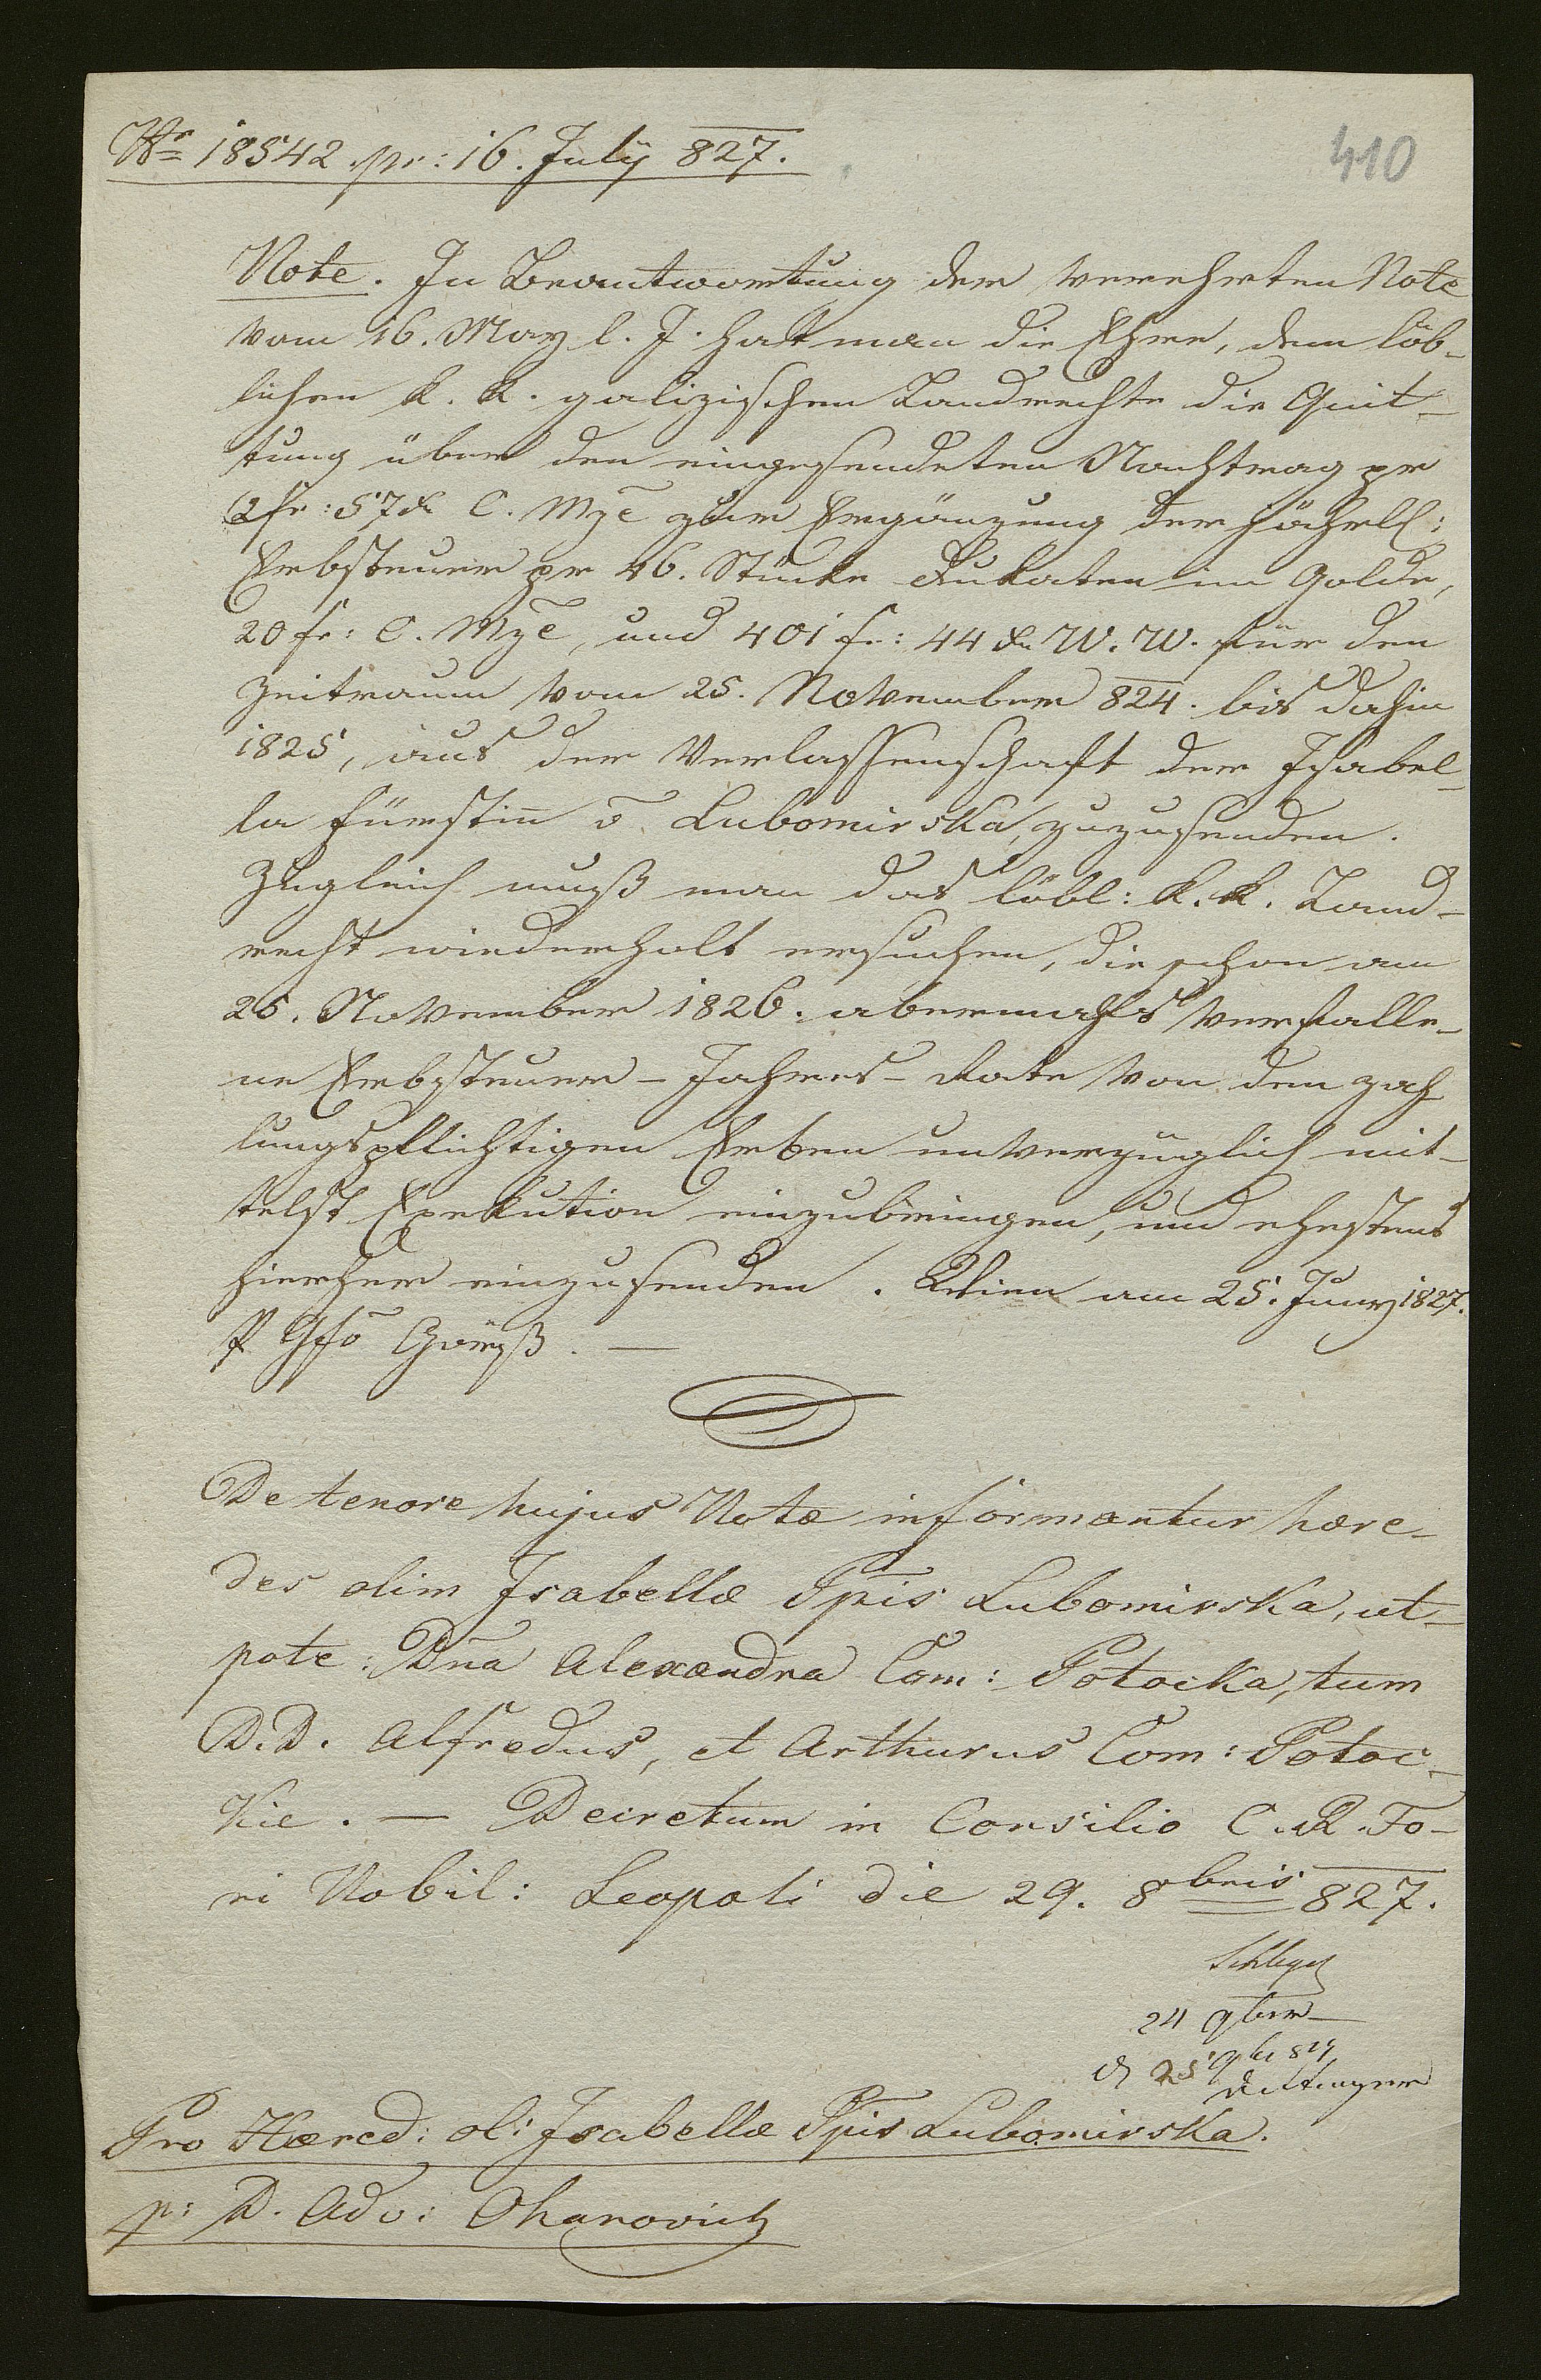 Nr 18542 pr: 16. July 827.
410
Note. In Beantwortung der verehrten Note
vom 16. May l. J. hat man die Ehre, dem löb-
lichen k. k. galizischen Landrechte die Quit-
tung über den eingesendeten Nachtrag pr
2 fr: 57 xr C. Mze zur Ergänzung der jährl:
Erbsteuer pr 46. Stücke Dukaten im Golde,
20 fr: C. Mze, und 401 fr: 44 xr W. W. für den
Zeitraum vom 25. November 824. bis dahin
1825, aus der Verlassenschaft der Isabel-
la Fürstin v. Lubomirska, zuzusenden.
Zugleich muß man das löbl: k. k. Land-
recht wiederholt ersuchen, die schon am
25. November 1826. abermahls verfalle-
ne Erbsteuer-Jahres-Rate von den zah-
lungspflichtigen Erben unverzüglich mit-
telst Exekution einzubringen, und ehestens
hierher einzusenden. Wien am 25. Juny 1827.
De tenore hujus Notæ informantur hære-
des olim Isabellæ Ppis Lubomirska, ut-
pote: Dna Alexandra Com: Potocka, tum
D.D. Alfredus, et Arthurus Com: Potoc-
kie. — Decretum in Consilio C. R. Fo-
ri Nobil: Leopoli die 29. 8bris 827.
24 9ber
25 9br 827
Pro Hæred: ol: Isabellæ Ppis Lubomirska.
p: D. Adv: Ohanovicz